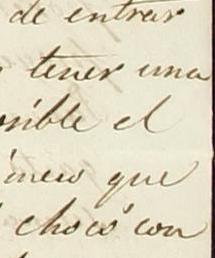 de entrar
tener una
sible el
que
chocó con